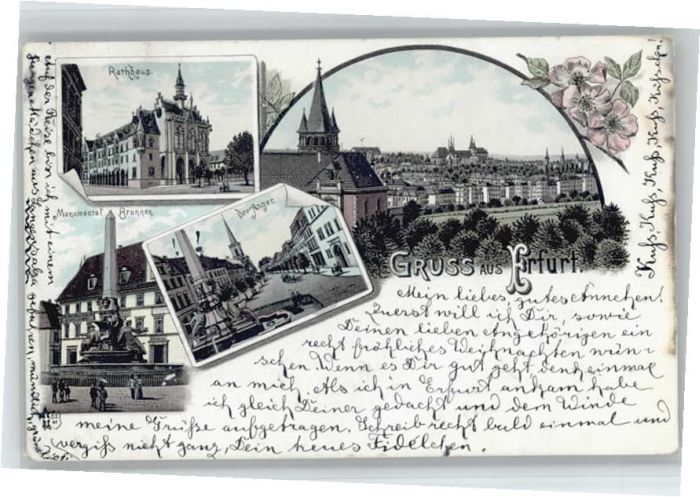 Rathhaus.
Monumental Brunnen
Der Anger.
GRUSS AUS Erfurt.
Mein liebes, gutes Annchen!
Zuerst will ich Dir sowie
Deinen lieben Angehörigen ein
recht fröhliches Weihnachten wün-
schen. Wenn es Dir gut geht, denk einmal
an mich. Als ich in Erfurt ankam, habe
ich gleich Deiner gedacht und dem Winde
meine Grüße aufgetragen. Schreib recht bald einmal und
vergiß nicht ganz Dein treues Fidelchen.
Auf der Reise bin ich mit einem
jungen Mädchen aus Langensalza gefahren,
Kuß, Kuß, Kuß, Kuß, Kuß,